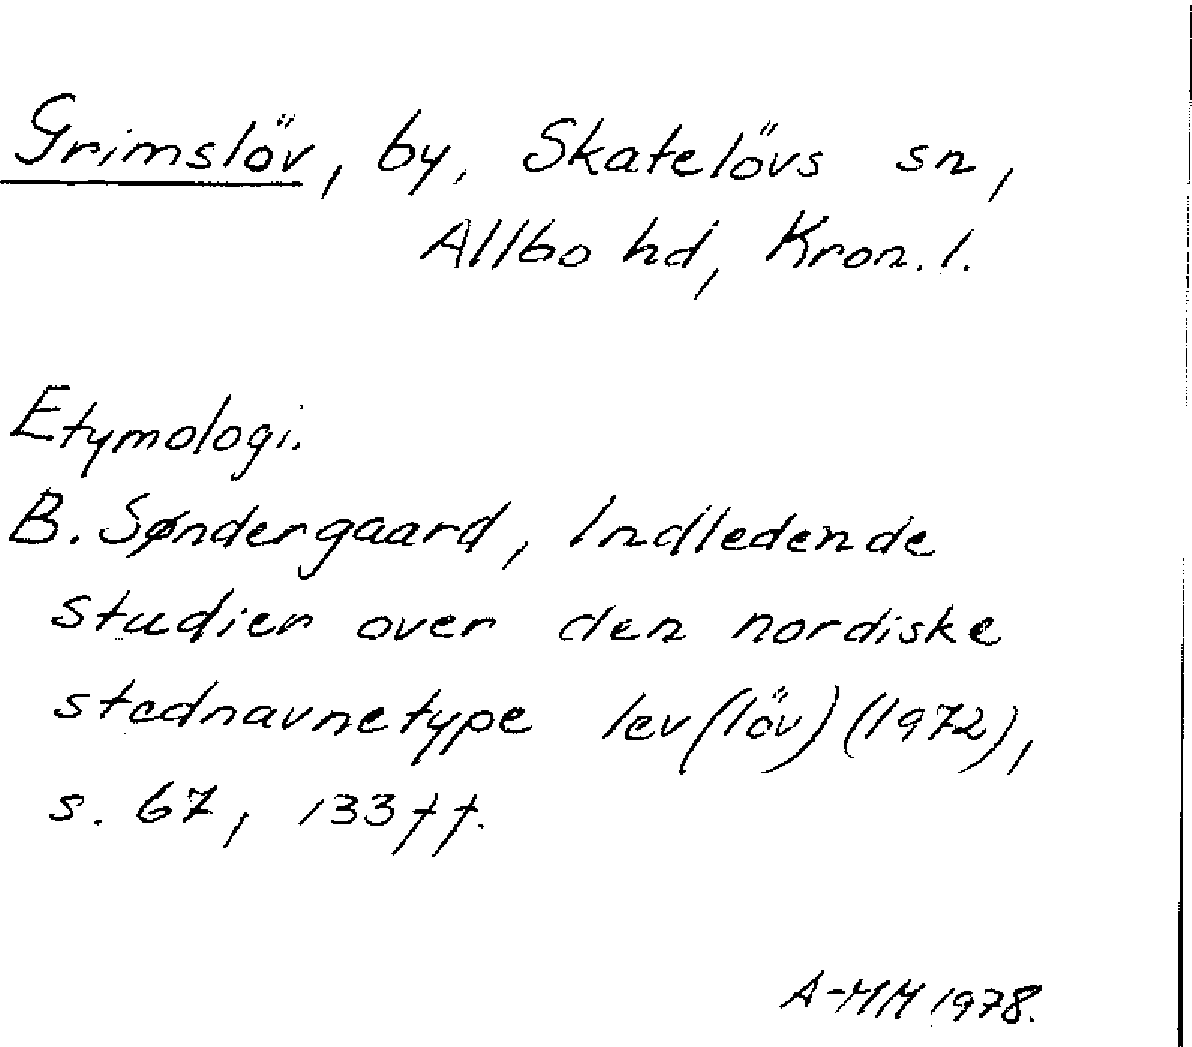 Grimslöv, by, Skatelövs sn,
Allbo hd, Kron. l.
Etymologi.
B. Søndergaard, Indledende
studier over den nordiske
stednavnetype lev (löv) (1972),
s. 67, 133 ff.
A-MM 1978.